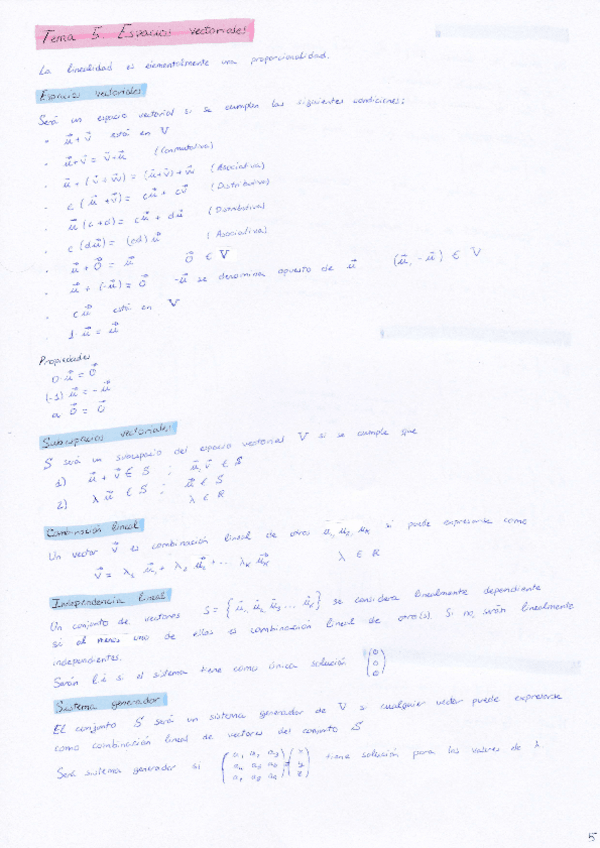 Tema 5. Espacios vectoriales
La linealidad es elementalmente una proporcionalidad.
Espacios vectoriales
Será un espacio vectorial si se cumplen las siguientes condiciones:
· u⃗+v⃗ está en V
· u⃗+v⃗ = v⃗+u⃗ (Conmutativa)
· u⃗ + (v⃗+w⃗) = (u⃗+v⃗)+w⃗ (Asociativa)
· c(u⃗+v⃗) = cu⃗ + cv⃗ (Distributiva)
· u⃗(c+d) = cu⃗ + du⃗ (Distributiva)
· c(du⃗) = (cd)u⃗ (Asociativa)
· u⃗ + 0⃗ = u⃗ 0⃗ ∈ V
· u⃗ + (-u⃗) = 0⃗ -u⃗ se denomina opuesto de u⃗ (u⃗, -u⃗) ∈ V
· cu⃗ está en V
· 1·u⃗ = u⃗
Propiedades
0·u⃗ = 0⃗
(-1)u⃗ = -u⃗
a·0⃗ = 0⃗
Subespacios vectoriales
S será un subespacio del espacio vectorial V si se cumple que
1) u⃗ + v⃗ ∈ S ; u⃗, v⃗ ∈ S
2) λu⃗ ∈ S ; u⃗ ∈ S
λ ∈ R
Combinación lineal
Un vector v⃗ es combinación lineal de otros u₁, u₂, uₖ si puede expresarse como
v⃗ = λ₁u⃗₁ + λ₂u⃗₂ + ... λₖu⃗ₖ λ ∈ R
Independencia lineal
Un conjunto de vectores S = {u⃗₁, u⃗₂, u⃗₃ ... u⃗ₖ} se considera linealmente dependiente
si al menos uno de ellos es combinación lineal de otro(s). Si no, serán linealmente
independientes.
Serán l.i. si el sistema tiene como única solución (0 0 0)
Sistema generador
El conjunto S será un sistema generador de V si cualquier vector puede expresarse
como combinación lineal de vectores del conjunto S
Será sistema generador si tiene solución para los valores de λ.
5